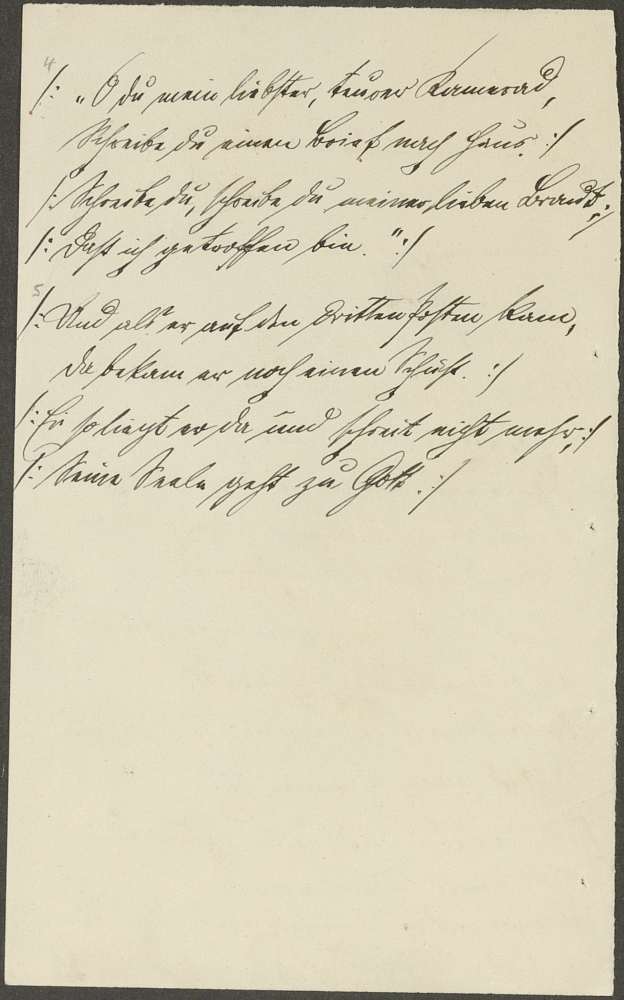 4
/: „O du mein liebster, teurer Kamerad,
Schreibe du einen Brief nach Haus. :/
/: Schreibe du, schreibe du meiner lieben Braut, :/
/: Daß ich getroffen bin.“ :/
5
/: Und als er auf den dritten Posten kam,
Da bekam er noch einen Schuß. :/
/: Ei so liegt er da und schreit nicht mehr, :/
/: Seine Seele geht zu Gott. :/